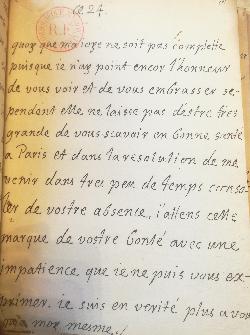 ce 24.
R.F.
quoy que ma ioye ne soit pas complette
puisque ie n'ay point encor l'honneur
de vous voir et de vous embrasser ce-
pendent elle ne laisse pas destre tres
grande de vous scavoir en bonne santé
a Paris et dans la resolution de me
venir dans tres peu de temps conso-
ler de vostre absence, i'attens cette
marque de vostre bonté avec une
impatience que ie ne puis vous ex-
primer. ie suis en verité plus a vous
qu'a moy mesme